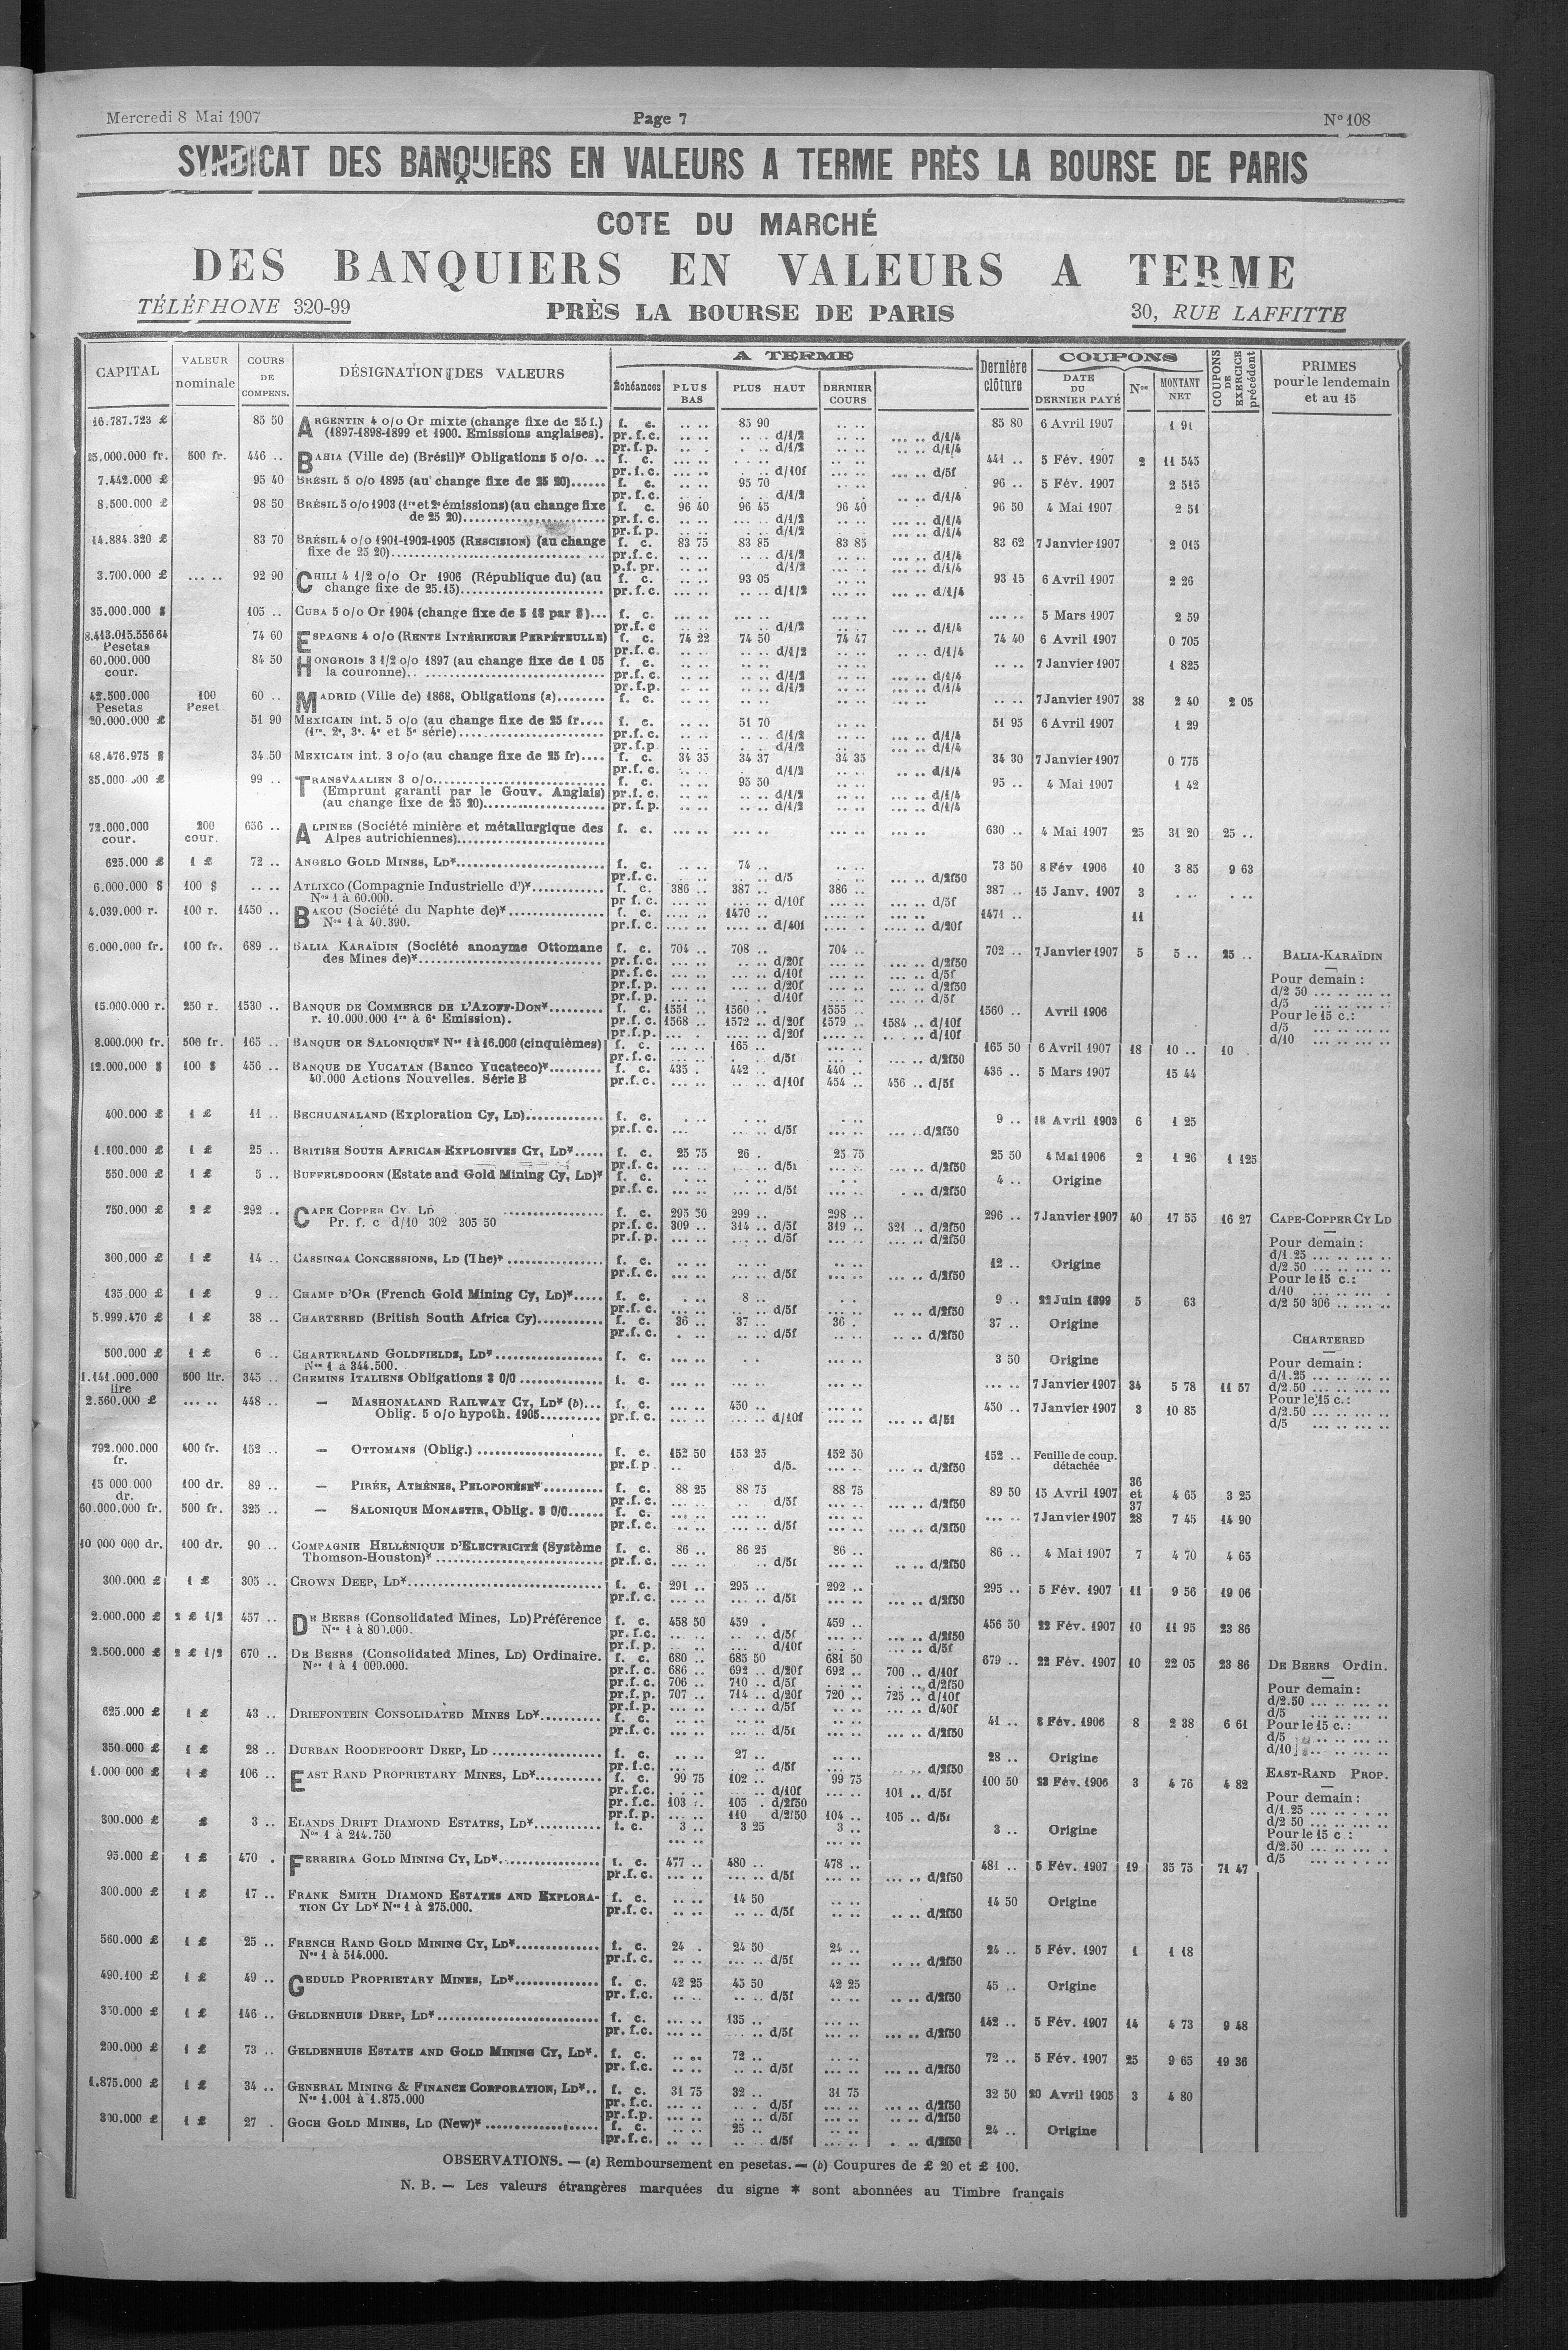 Mercredi 8 Mai 1907 Page 7 N° 108
SYNDICAT DES BANQUIERS EN VALEURS A TERME PRÈS LA BOURSE DE PARIS
COTE DU MARCHÉ
DES BANQUIERS EN VALEURS A TERME
TÉLÉPHONE 320-99 PRÈS LA BOURSE DE PARIS 30, RUE LAFFITTE
CAPITAL VALEUR nominale COURS DE COMPENS. DÉSIGNATION DES VALEURS A TERME Échéances PLUS BAS PLUS HAUT DERNIER COURS Dernière clôture COUPONS DATE DU DERNIER PAYÉ Nos MONTANT NET COUPONS DE EXERCICE précédent PRIMES pour le lendemain et au 15
16.787.723 £ 85 50 ARGENTIN 4 o/o Or mixte (change fixe de 25 f.) f. c. .. .. 85 90 .. .. 85 80 6 Avril 1907 1 91
(1897-1898-1899 et 1900. Emissions anglaises). pr. f. c. .. .. .. .. d/1/2 .. .. ... .. d/1/4
pr. f. p. .. . .. .. d/1/2 .. .. .. .. d/1/4
25,000.000 fr. 500 fr. 446 .. BAHIA (Ville de) (Brésil)* Obligations 5 o/o. .. f. c. 441 .. 5 Fév. 1907 2 11 545
pr. f. c. d/10f d/5f
7.442.000 £ 95 40 BRÉSIL 5 o/o 1895 (au change fixe de 25 20)...... f. c. 95 70 96 .. 5 Fév. 1907 2 515
pr. f. c. d/1/2 d/1/4
8.500.000 £ 98 50 BRÉSIL 5 o/o 1903 (1re et 2e émissions) (au change fixe f. c. 96 40 96 45 96 40 96 50 4 Mai 1907 2 51
de 25 20)........................ pr. f. c. d/1/2 d/1/4
pr. f. p. d/1/2 d/1/4
14.884.320 £ 83 70 BRÉSIL 4 o/o 1901-1902-1905 (RESCISION) (au change f. c. 83 75 83 85 83 85 83 62 7 Janvier 1907 2 015
fixe de 25 20)........................ pr. f. c. d/1/2 d/1/4
p.f. pr. d/1/2 d/1/4
3.700.000 £ ... .. 92 90 CHILI 4 1/2 o/o Or 1906 (République du) (au f. c. 93 05 93 15 6 Avril 1907 2 26
change fixe de 25.15)........................ pr. f. c. d/1/2 d/1/4
35.000.000 $ 105 .. CUBA 5 o/o Or 1904 (change fixe de 5 18 par $)... f. c. ... .. 5 Mars 1907 2 59
pr. f. c d/1/2 d/1/4
8.413.015.556 64 74 60 ESPAGNE 4 o/o (RENTE INTÉRIEURE PERPÉTEULLE) f. c. 74 22 74 50 74 47 74 40 6 Avril 1907 0 705
Pesetas pr. f. c. d/1/2 d/1/4
60.000.000 84 50 HONGROIS 3 1/2 o/o 1897 (au change fixe de 1 05 f. c. .. .. 7 Janvier 1907 1 825
cour. la couronne).. ........................ pr. f. c. d/1/2 d/1/4
pr. f. p. d/1/2 d/1/4
42.500.000 100 60 .. MADRID (Ville de) 1868, Obligations (a)........ f. c. .. .. 7 Janvier 1907 38 2 40 2 05
Pesetas Peset.
20.000.000 £ 51 90 MEXICAIN int. 5 o/o (au change fixe de 25 fr.... f. c. 51 70 51 95 6 Avril 1907 1 29
(1re, 2e, 3e, 4e et 5e série)........................ pr. f. c. d/1/2 d/1/4
pr. f. p d/1/2 d/1/4
48.476.975 $ 34 50 MEXICAIN int. 3 o/o (au change fixe de 25 fr).... f. c. 34 35 34 37 34 35 34 30 7 Janvier 1907 0 775
pr. f. c. d/1/2 d/1/4
35.000.000 £ 99 .. TRANSVAALIEN 3 o/o........................ f. c. 95 50 95 .. 4 Mai 1907 1 42
(Emprunt garanti par le Gouv. Anglais) pr. f. c. d/1/2 d/1/4
(au change fixe de 25 20)........................ pr. f. p. d/1/2 d/1/4
72.000.000 200 656 .. ALPINES (Société minière et métallurgique des f. c. ... .. ... .. ... .. 630 .. 4 Mai 1907 25 31 20 25 ..
cour. cour. Alpes autrichiennes)........................
625.000 £ 1 £ 72 .. ANGELO GOLD MINES, LD*........................ f. c. 74 .. 73 50 8 Fév 1906 10 3 85 9 63
pr. f. c. d/5 d/2f50
6.000.000 $ 100 $ .. .. ATLIXCO (Compagnie Industrielle d')*............ f. c. 386 .. 387 .. 386 .. 387 .. 15 Janv. 1907 3
Nos 1 à 60.000. pr f. c. d/10f d/5f
4.039.000 r. 100 r. 1450 .. BAKOU (Société du Naphte de)*................ f. c. 1470 .. 1471 .. 11
Nos 1 à 40.390. pr. f. c. d/40f d/20f
6.000.000 fr. 100 fr. 689 .. BALIA KARAÏDIN (Société anonyme Ottomane f. c. 704 .. 708 .. 704 .. 702 .. 7 Janvier 1907 5 5 .. 25 .. BALIA-KARAÏDIN
des Mines de)*........................ pr. f. c. d/20f d/2f50
pr. f. c. d/10f d/5f Pour demain :
pr. f. p. d/20f d/2f50 d/2 50 ... .. ... ..
pr. f. p. d/10f d/5f d/5 ... .. ... ..
15.000.000 r. 250 r. 1530 .. BANQUE DE COMMERCE DE L'AZOFF-DON*......... f. c. 1551 .. 1560 .. 1555 .. 1560 .. Avril 1906 Pour le 15 c.:
r. 10.000.000 1re à 6e Emission). pr. f. c. 1568 .. 1572 .. d/20f 1579 .. 1584 .. d/10f d/5 ... .. ... ..
pr. f. p. d/20f d/10f d/10 ... .. ... ..
8.000.000 fr. 500 fr. 165 .. BANQUE DE SALONIQUE* Nos 1 à 16.000 (cinquièmes) f. c. 165 .. 165 50 6 Avril 1907 18 10 .. 10 .
pr. f. c. d/5f d/2f50
12.000.000 $ 100 $ 456 .. BANQUE DE YUCATAN (Banco Yucateco)*......... f. c. 435 . 442 .. 440 .. 436 .. 5 Mars 1907 15 44
40.000 Actions Nouvelles. Série B pr. f. c. d/10f 454 .. 456 .. d/5f
400.000 £ 1 £ 11 .. BECHUANALAND (Exploration Cy, LD)............. f. c. 9 .. 18 Avril 1903 6 1 25
pr. f. c. d/5f d/2f50
1.100.000 £ 1 £ 25 .. BRITISH SOUTH AFRICAN EXPLOSIVES CY, LD*..... f. c. 25 75 26 . 25 75 25 50 4 Mai 1906 2 1 26 1 125
pr. f. c. d/5f d/2f50
550.000 £ 1 £ 5 .. BUFFELSDOORN (Estate and Gold Mining Cy, LD)* f. c. 4 .. Origine
pr. f. c. d/5f d/2f50
750.000 £ 2 £ 292 .. CAPE COPPER CY. LD ................ f. c. 295 50 299 .. 298 .. 296 .. 7 Janvier 1907 40 17 55 16 27 CAPE-COPPER CY LD
Pr. f. c d/10 302 305 50 pr. f. c. 309 .. 314 .. d/5f 319 .. 321 .. d/2f50
pr. f. p. d/5f d/2f50 Pour demain :
300.000 £ 1 £ 14 .. CASSINGA CONCESSIONS, LD (The)*................ f. c. 12 .. Origine d/1.25 ... .. ... ..
pr. f. c. d/5f d/2f50 d/2.50 ... .. ... ..
Pour le 15 c.:
135.000 £ 1 £ 9 .. CHAMP D'OR (French Gold Mining Cy, LD)*..... f. c. 8 .. 9 .. 22 Juin 1899 5 63 d/10 ... .. ... ..
pr. f. c. d/5f d/2f50 d/2 50 306 .. ... ..
5.999.470 £ 1 £ 38 .. CHARTERED (British South Africa Cy)........... f. c. 36 .. 37 .. 36 . 37 .. Origine
pr. f. c. d/5f d/2f50 CHARTERED
500.000 £ 1 £ 6 .. CHARTERLAND GOLDFIELDS, LD*................ f. c. 3 50 Origine Pour demain :
Nos 1 à 344.500. d/1.25 ... .. ... ..
1.141.000.000 500 lir. 345 .. CHEMINS ITALIENS Obligations 3 0/0 ............ f. c. ... .. 7 Janvier 1907 34 5 78 11 57 d/2.50 ... .. ... ..
lire
2.560.000 £ ... .. 448 .. — MASHONALAND RAILWAY CY, LD* (b)... f. c. 450 .. 450 .. 7 Janvier 1907 3 10 85 Pour le 15 c.:
Oblig. 5 o/o hypoth. 1905.......... pr. f. c. d/10f d/5f d/2.50 ... .. ... ..
d/5 ... .. ... ..
792.000.000 400 fr. 152 .. — OTTOMANS (Oblig.) ................ f. c. 152 50 153 25 152 50 152 .. Feuille de coup.
fr. pr. f. p. d/5. d/2f50 détachée
15 000 000 100 dr. 89 .. — PIRÉE, ATHÈNES, PELOPONÈSE*.......... f. c. 88 25 88 75 88 75 89 50 15 Avril 1907 36 et 37 4 65 3 25
dr. pr. f. c. d/5f d/2f50
60.000.000 fr. 500 fr. 325 .. — SALONIQUE MONASTIR, Oblig. 3 0/0...... f. c. ... .. 7 Janvier 1907 28 7 45 14 90
pr. f. c. d/5f d/2f50
10 000 000 dr. 100 dr. 90 .. COMPAGNIE HELLÉNIQUE D'ELECTRICITÉ (Système f. c. 86 .. 86 25 86 .. 86 .. 4 Mai 1907 7 4 70 4 65
Thomson-Houston)*........................ pr. f. c. d/5f d/2f50
300.000 £ 1 £ 305 .. CROWN DEEP, LD*........................ f. c. 291 .. 295 .. 292 .. 295 .. 5 Fév. 1907 11 9 56 19 06
pr. f. c. d/5f d/2f50
2.000.000 £ 2 £ 1/2 457 .. DE BEERS (Consolidated Mines, LD) Préférence f. c. 458 50 459 . 459 .. 456 50 22 Fév. 1907 10 11 95 23 86
Nos 1 à 800.000. pr. f. c. d/5f d/2f50
pr. f. p. d/10f d/5f
2.500.000 £ 2 £ 1/2 670 .. DE BEERS (Consolidated Mines, LD) Ordinaire. f. c. 680 .. 685 50 681 50 679 .. 22 Fév. 1907 10 22 05 23 86 DE BEERS Ordin.
Nos 1 à 1 000.000. pr. f. c. 686 .. 692 .. d/20f 692 .. 700 .. d/10f
pr. f. c. 706 .. 710 .. d/5f d/2f50 Pour demain :
pr. f. p. 707 .. 714 .. d/20f 720 .. 725 .. d/10f d/2.50 ... .. ... ..
pr. f. p. d/5f d/40f d/5 ... .. ... ..
625.000 £ 1 £ 43 .. DRIEFONTEIN CONSOLIDATED MINES LD*.......... f. c. 41 .. 8 Fév. 1906 8 2 38 6 61 Pour le 15 c. :
pr. f. c. d/5f d/2f50 d/5 .. ... ..
350.000 £ 1 £ 28 .. DURBAN ROODEPOORT DEEP, LD ................ f. c. 27 .. 28 .. Origine d/10 .. ... ..
pr. f. c. d/5f d/2f50
1.000 000 £ 1 £ 106 .. EAST RAND PROPRIETARY MINES, LD*........... f. c. 99 75 102 .. 99 75 100 50 23 Fév. 1906 3 4 76 4 82 EAST-RAND PROP.
pr. f. c. d/10f 101 .. d/5f
pr. f. c. 103 .. 105 . d/2f50 Pour demain :
pr. f. p. 110 d/2f50 104 .. 105 .. d/5f d/1.25 ... .. . . ..
300.000 £ £ 3 .. ELANDS DRIFT DIAMOND ESTATES, LD*........... f. c. 3 .. 3 25 3 .. 3 .. Origine d/2 50 ... .. ... ..
Nos 1 à 214.750 Pour le 15 c :
d/2.50 ... .. ... .
95.000 £ 1 £ 470 . FERREIRA GOLD MINING CY, LD*................ f. c. 477 .. 480 .. 478 .. 481 .. 5 Fév. 1907 19 35 75 71 47 d/5 ... .. . . ..
pr. f. c. d/5f d/2f50
300.000 £ 1 £ 17 .. FRANK SMITH DIAMOND ESTATES AND EXPLORA- f. c. 14 50 14 50 Origine
TION CY LD* Nos 1 à 275.000. pr. f. c. d/5f d/2f50
560.000 £ 1 £ 25 .. FRENCH RAND GOLD MINING CY, LD*.............. f. c. 24 . 24 50 24 .. 24 .. 5 Fév. 1907 1 1 18
Nos 1 à 514.000. pr. f. c. d/5f d/2f50
490.100 £ 1 £ 49 .. GEDULD PROPRIETARY MINES, LD*.............. f. c. 42 25 43 50 42 25 45 .. Origine
pr. f.c. d/5f d/2f50
350.000 £ 1 £ 146 .. GELDENHUIS DEEP, LD*........................ f. c. 135 .. 142 .. 5 Fév. 1907 14 4 73 9 48
pr. f.c. d/5f d/2f50
200.000 £ 1 £ 73 .. GELDENHUIS ESTATE AND GOLD MINING CY, LD*. f. c. 72 .. 72 .. 5 Fév. 1907 25 9 65 19 36
pr. f.c. d/5f d/2f50
1.875.000 £ 1 £ 34 .. GENERAL MINING & FINANCE CORPORATION, LD*.. f. c. 31 75 32 .. 31 75 32 50 20 Avril 1905 3 4 80
Nos 1.001 à 1.875.000 pr. f.c. d/5f d/2f50
pr. f.p. d/5f d/2f50
300.000 £ 1 £ 27 . GOCH GOLD MINES, LD (New)*................ f. c. 25 .. 24 .. Origine
pr. f. c. d/5f d/2f50
OBSERVATIONS. — (a) Remboursement en pesetas. — (b) Coupures de £ 20 et £ 100.
N. B. — Les valeurs étrangères marquées du signe * sont abonnées au Timbre français